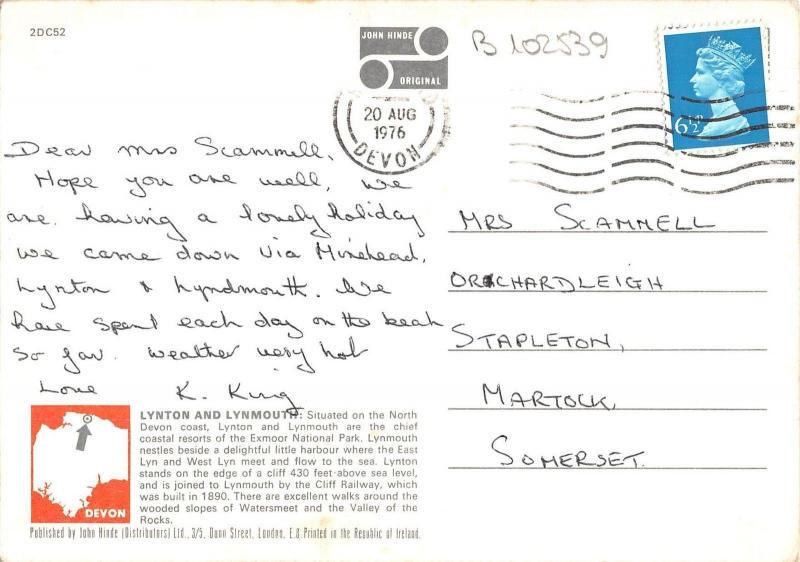 2DC52
JOHN HINDE
ORIGINAL
B 102539
20 AUG
1976
DEVON
6½P
Dear Mrs Scammell,
Hope you are well, we
are having a lovely holiday
we came down via Minehead,
Lynton & Lyndmouth. We
have spent each day on the beah
so far. weather very hot
Love K. King
MRS SCAMMELL
ORCHARDLEIGH
STAPLETON,
MARTOCK,
SOMERSET.
DEVON
LYNTON AND LYNMOUTH: Situated on the North
Devon coast, Lynton and Lynmouth are the chief
coastal resorts of the Exmoor National Park. Lynmouth
nestles beside a delightful little harbour where the East
Lyn and West Lyn meet and flow to the sea. Lynton
stands on the edge of a cliff 430 feet above sea level,
and is joined to Lynmouth by the Cliff Railway, which
was built in 1890. There are excellent walks around the
wooded slopes of Watersmeet and the Valley of the
Rocks.
Published by John Hinde (Distributors) Ltd., 3/5, Dunn Street, London, E.8. Printed in the Republic of Ireland.